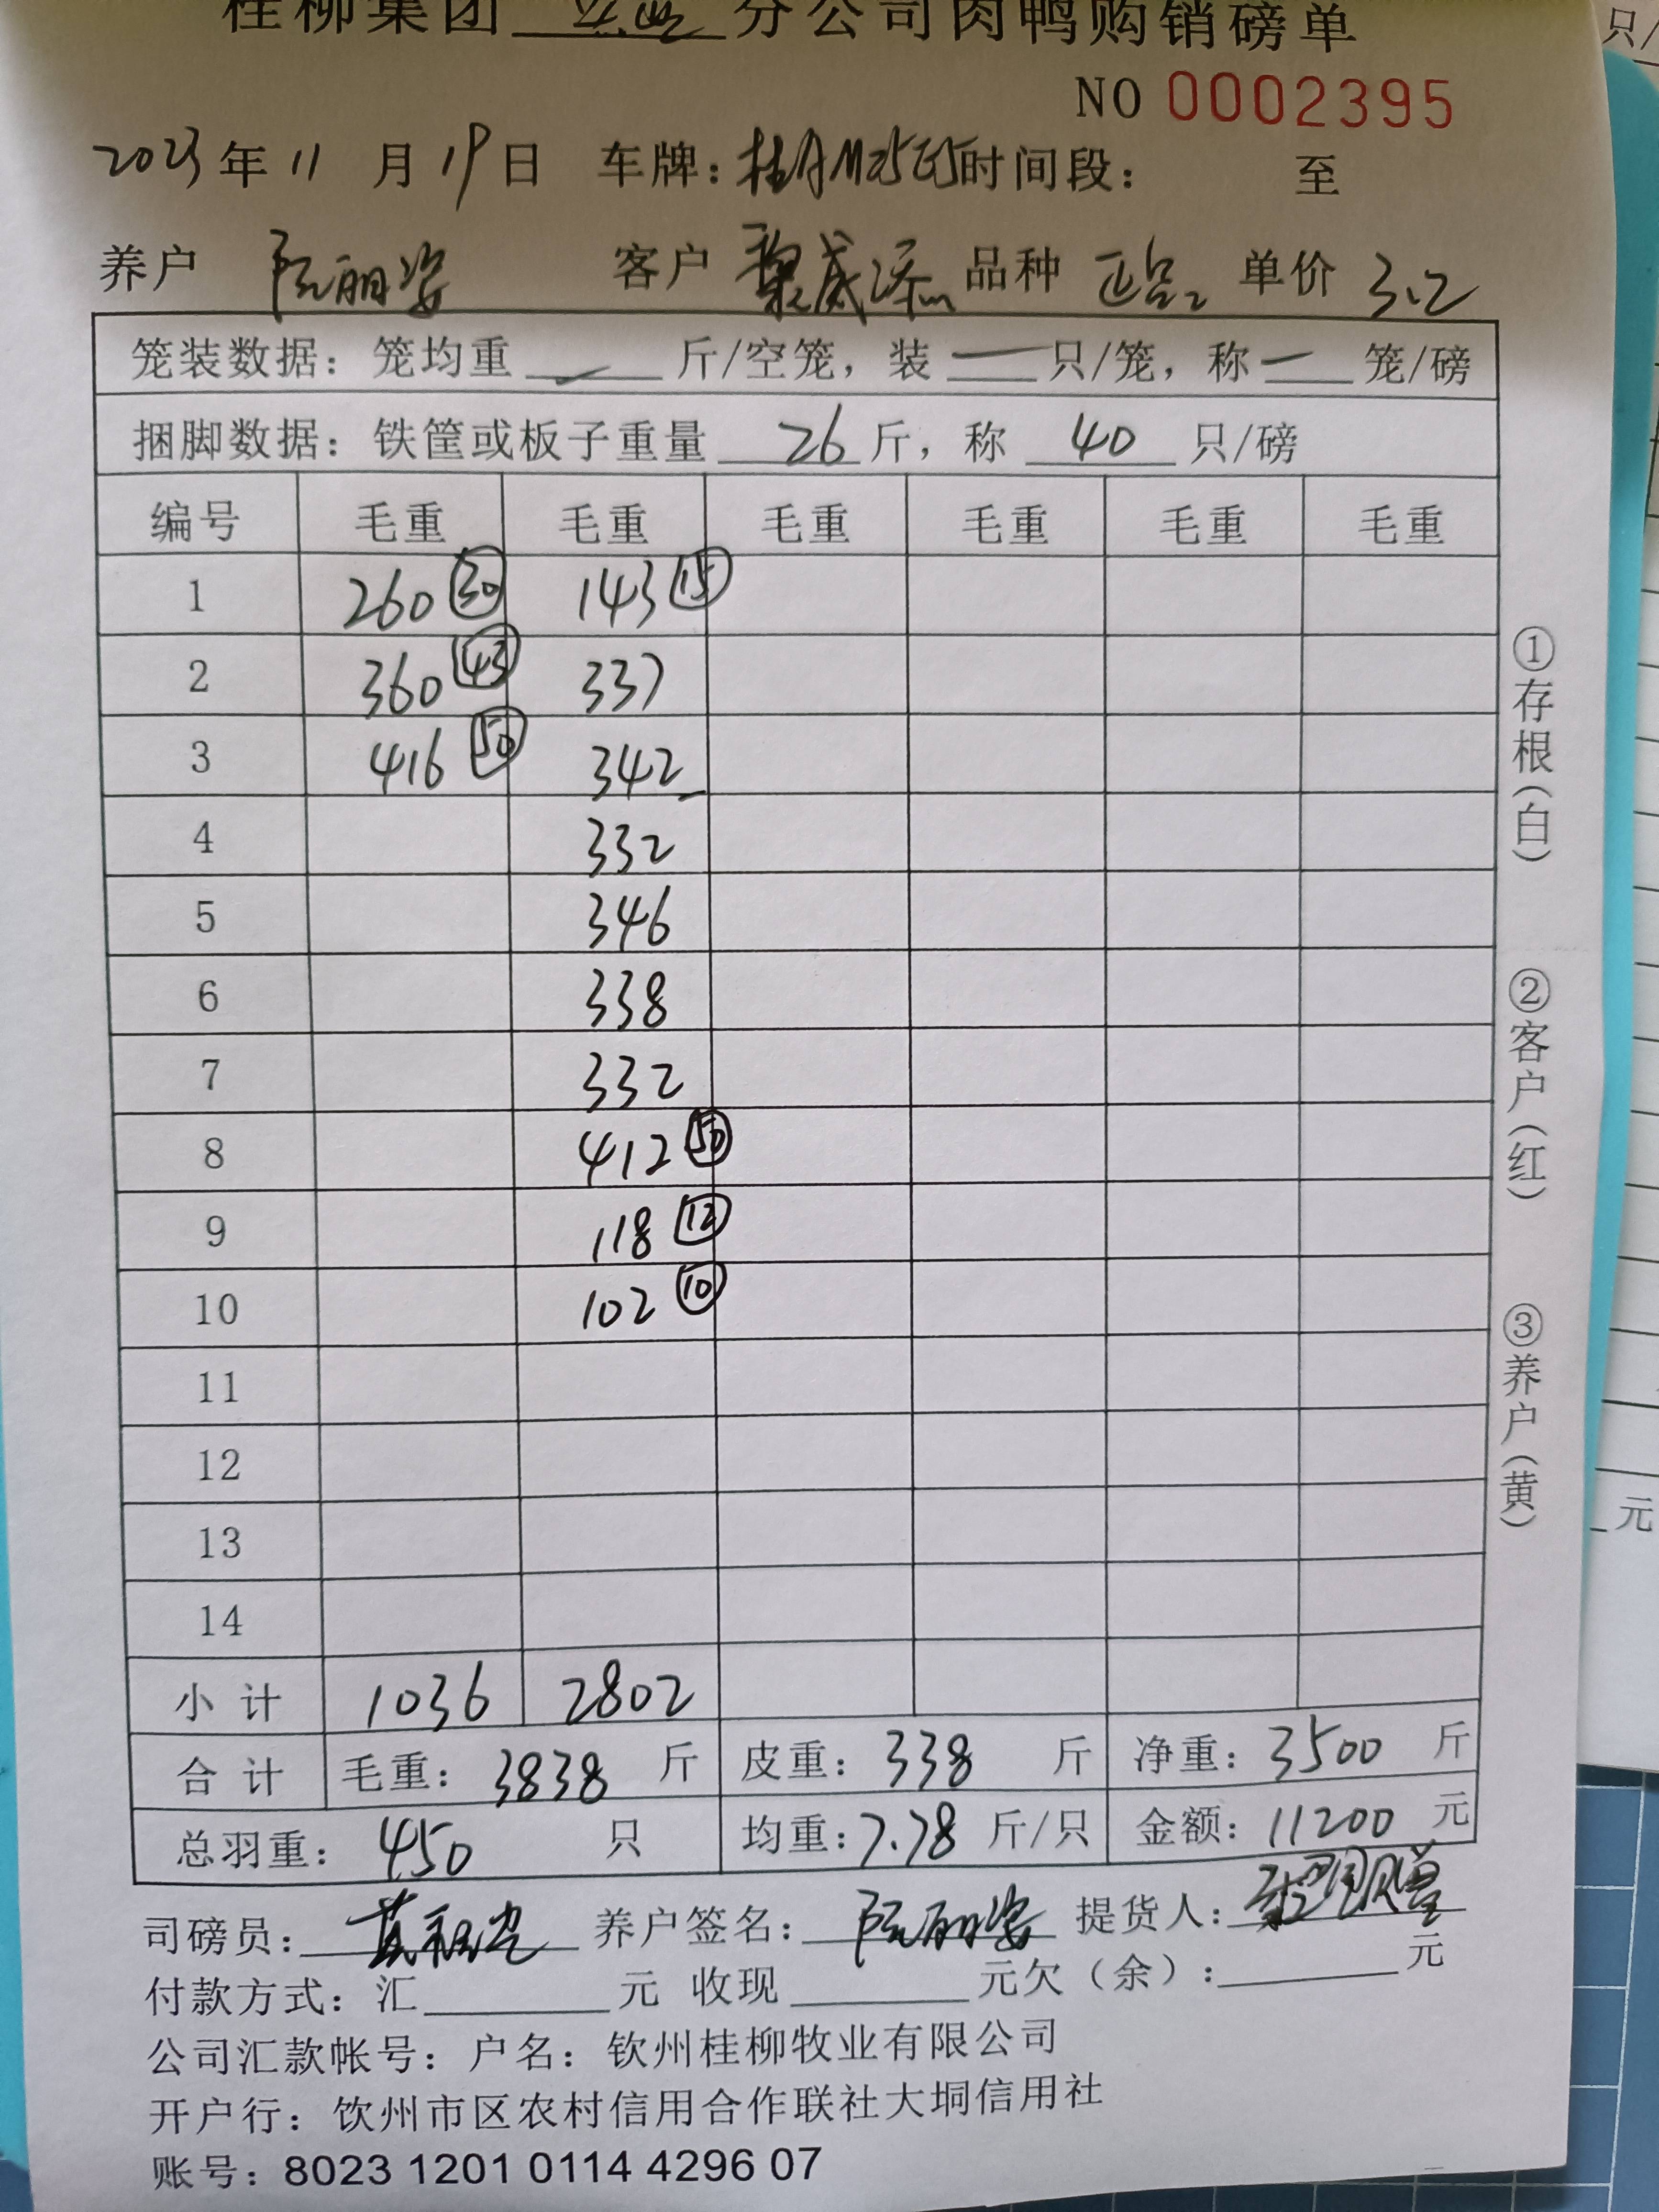 桂柳集团 分公司肉鸭购销磅单
NO 0002395
2023年11月19日 车牌：桂AM 时间段： 至
养户 阮丽姿 客户 黎威添 品种 正品 单价 3.2
笼装数据：笼均重 — 斤/空笼，装 — 只/笼，称 — 笼/磅
捆脚数据：铁筐或板子重量 26 斤，称 40 只/磅
编号 毛重 毛重 毛重 毛重 毛重 毛重
1 260 ㉚ 143 ⑮
2 360 ㊸ 337
3 416 ㊿ 342
4 332
5 346
6 338
7 332
8 412 ㊿
9 118 ⑫
10 102 ⑩
11
12
13
14
小计 1036 2802
合计 毛重：3838 斤 皮重：338 斤 净重：3500 斤
总羽重：450 只 均重：7.78 斤/只 金额：11200 元
司磅员： 养户签名：阮丽姿 提货人：
付款方式：汇 元 收现 元欠（余）： 元
公司汇款帐号：户名：钦州桂柳牧业有限公司
开户行：饮州市区农村信用合作联社大垌信用社
账号：8023 1201 0114 4296 07
①存根（白）
②客户（红）
③养户（黄）
只/
元